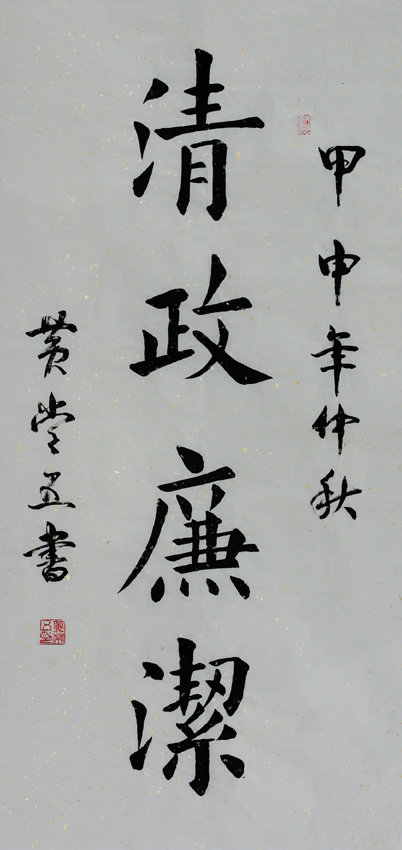 甲申年仲秋
清政廉潔
黄堂五書